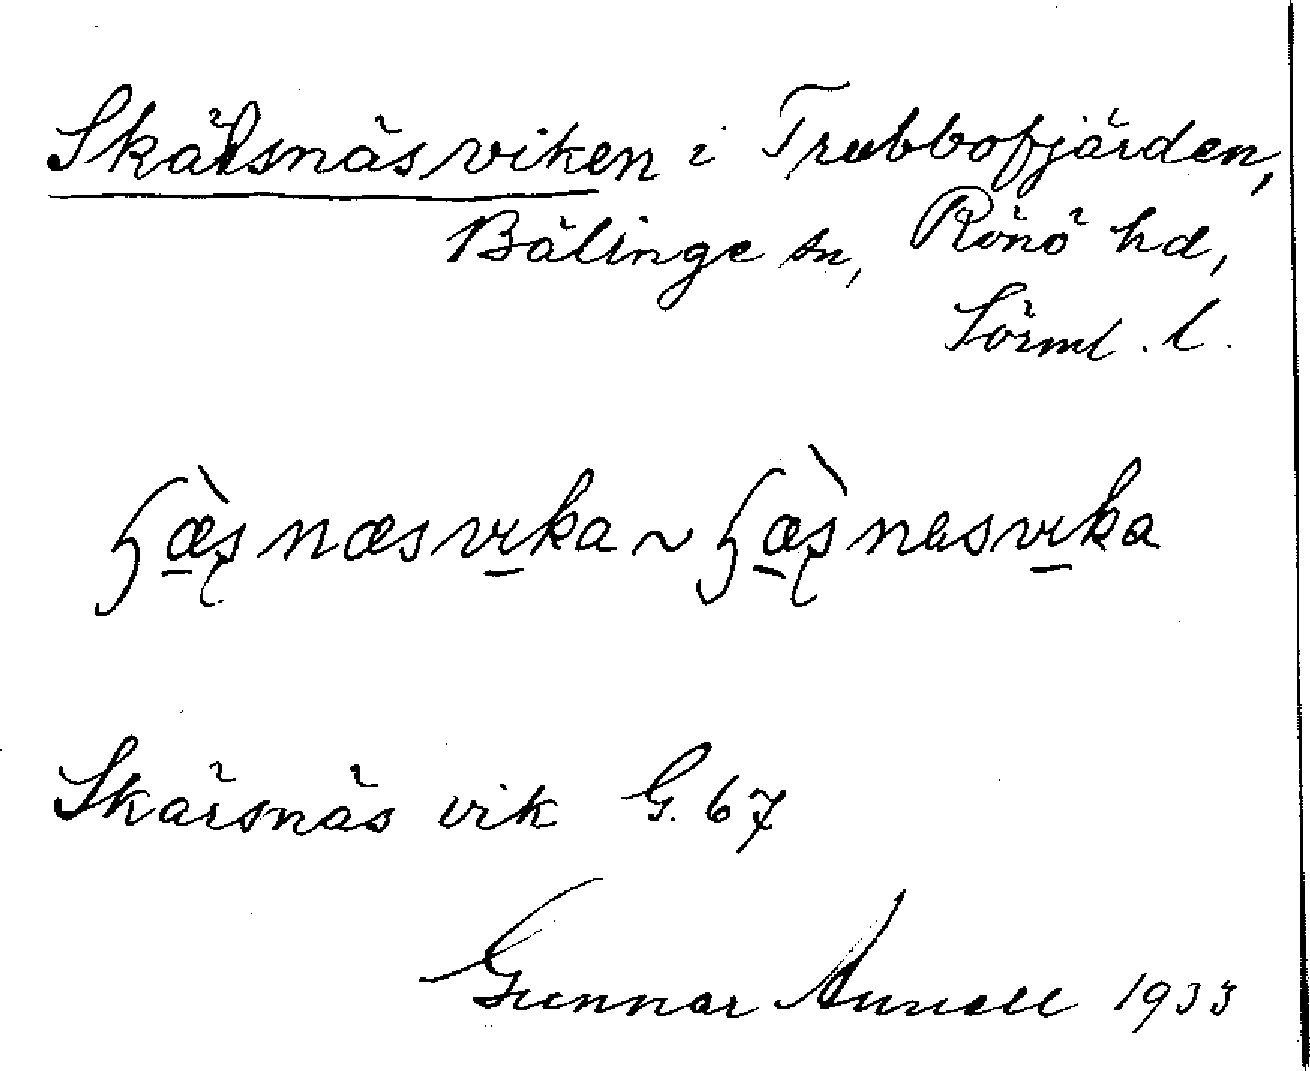 Skälsnäsviken i Trobbofjärden,
Bälinge sn, Rönö hd,
Sörml. l.
ɧæ̀ʂnæsvika ~ ɧæ̀ʂnesvika
Skärsnäs vik G. 67
Gunnar 1933